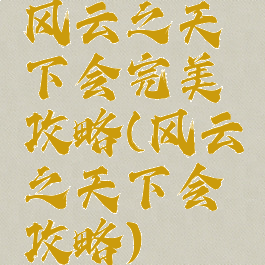 风云之天
下会完美
攻略(风云
之天下会
攻略)